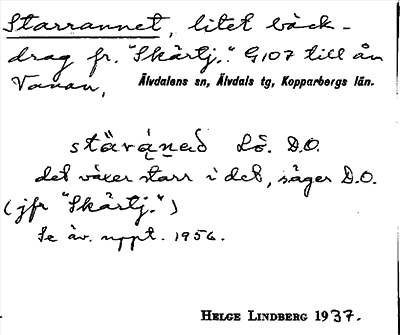 Starrannet, litet bäck-
drag fr. "Skärtj." G107 till ån
Vanan, Älvdalens sn, Älvdals tg, Kopparbergs län.
Lö. D.O.
det växer starr i det, säger D.O.
(jfr "Skärtj.")
Se äv. uppt. 1956.
HELGE LINDBERG 1937.